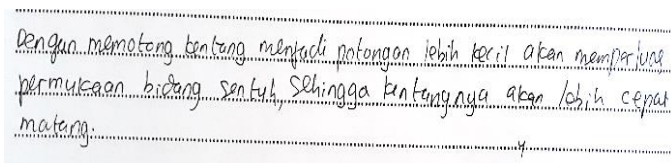 Dengan memotong kentang menjadi potongan lebih kecil akan memperluas
permukaan bidang sentuh, sehingga kentangnya akan lebih cepat
matang.